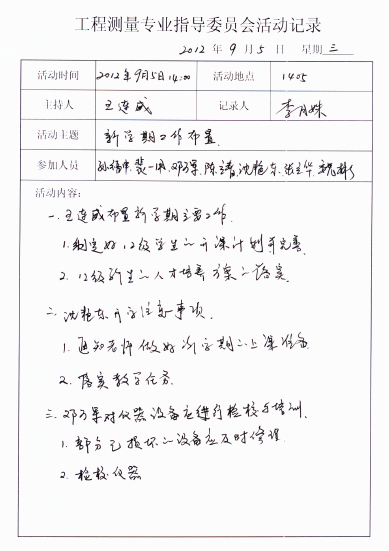 工程测量专业指导委员会活动记录
2012 年 9 月 5 日 星期 三
活动时间 2012年9月5日14:00 活动地点 1405
主持人 王连威 记录人 李月姝
活动主题 新学期工作布置
参加人员 陈 沈艳东
活动内容:
一.王连威布置新学期主要工作.
1.制定好12级学生的开课计划并完善
2.12级新生的人才培养方案的落实.
二.沈艳东开学注意事项.
1.通知老师做好新学期的上课准备
2.落实教学任务.
三.邓 对仪器设备应进行检校与培训.
1.部分已损坏的设备应及时修理.
2.检校仪器